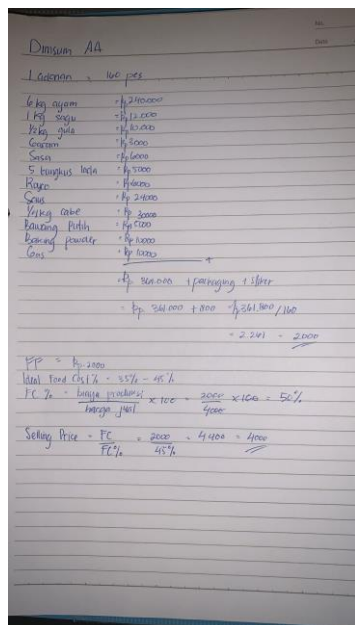 Dimsum AA
1 adonan = 160 pcs
6 kg ayam = Rp 240.000
1 kg sagu = Rp 12.000
1/2 kg gula = Rp 10.000
Garam = Rp 3000
Sasa = Rp 6000
5 bungkus lada = Rp 5000
Royco
Saus = Rp 24000
1/4 kg cabe = Rp 30000
Bawang Putih
Baking powder = Rp 10000
Gas = Rp 10000
+
Rp 361.000 + packaging + stiker
= Rp. 361.000 + 800 = Rp 361.800/160
= 2.261 = 2000
= Rp. 2000
Ideal Food Cost % = 35% - 45%
FC % = harga produksi / harga jual x 100 = 2000 / 4000 x 100 = 50%
Selling Price = FC / FC% = 2000 / 45% = 4.400 = 4000